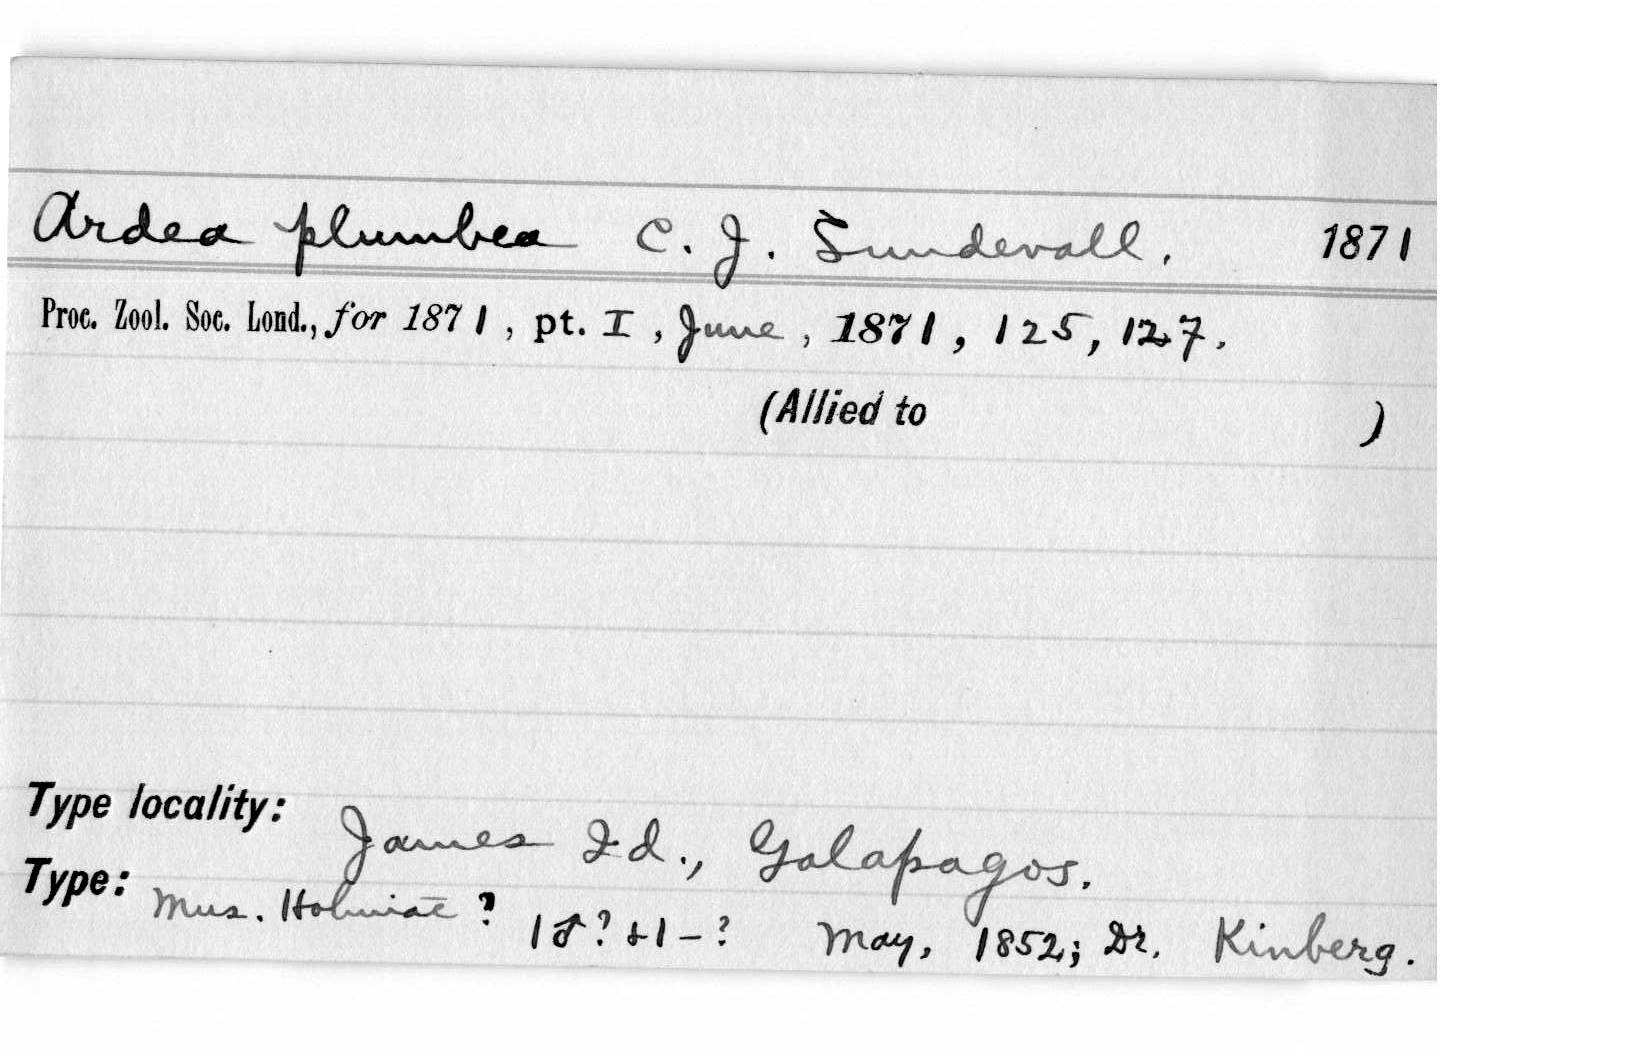 Ardea plumbea C. J. Sundevall. 1871
Proc. Zool. Soc. Lond., for 1871, pt. I, June, 1871, 125, 127.
(Allied to )
Type locality: James Id., Galapagos.
Type: Mus. Holmiae ? 1♂? + 1 – ? May, 1852; Dr. Kinberg.